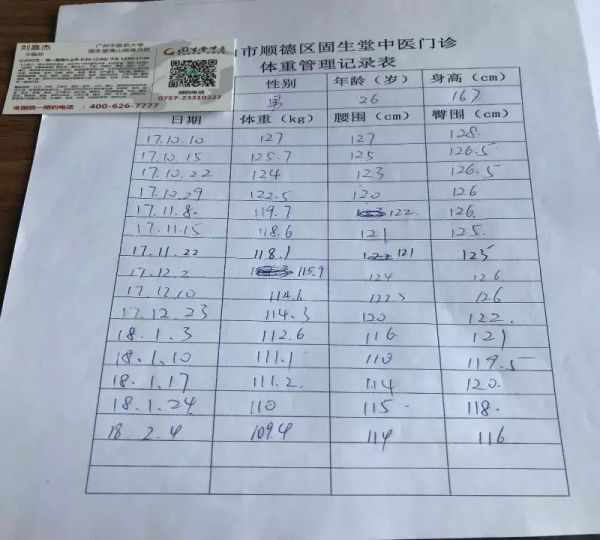 刘嘉杰
中医师
广州中医药大学
400-626-7777
0757-23310227
市顺德区固生堂中医门诊
体重管理记录表
性别 年龄（岁） 身高（cm）
男 26 167
日期 体重（kg） 腰围（cm） 臀围（cm）
17.10.10 127 127 128.
17.10.15 125.7 125 126.5
17.10.22 124 123 126.5
17.10.29 122.5 120 126
17.11.8. 119.7 122. 126.
17.11.15 118.6 121 125.
17.11.22 118.1 121 125
17.12.2 115.9 124 126
17.12.10 114.6 122.5 126
17.12.23 114.3 120 122.
18.1.3 112.6 116 121
18.1.10 111.1 110 119.5
18.1.17 111.2 114 120.
18.1.24 110 115 118.
18.2.4 109.4 114 116